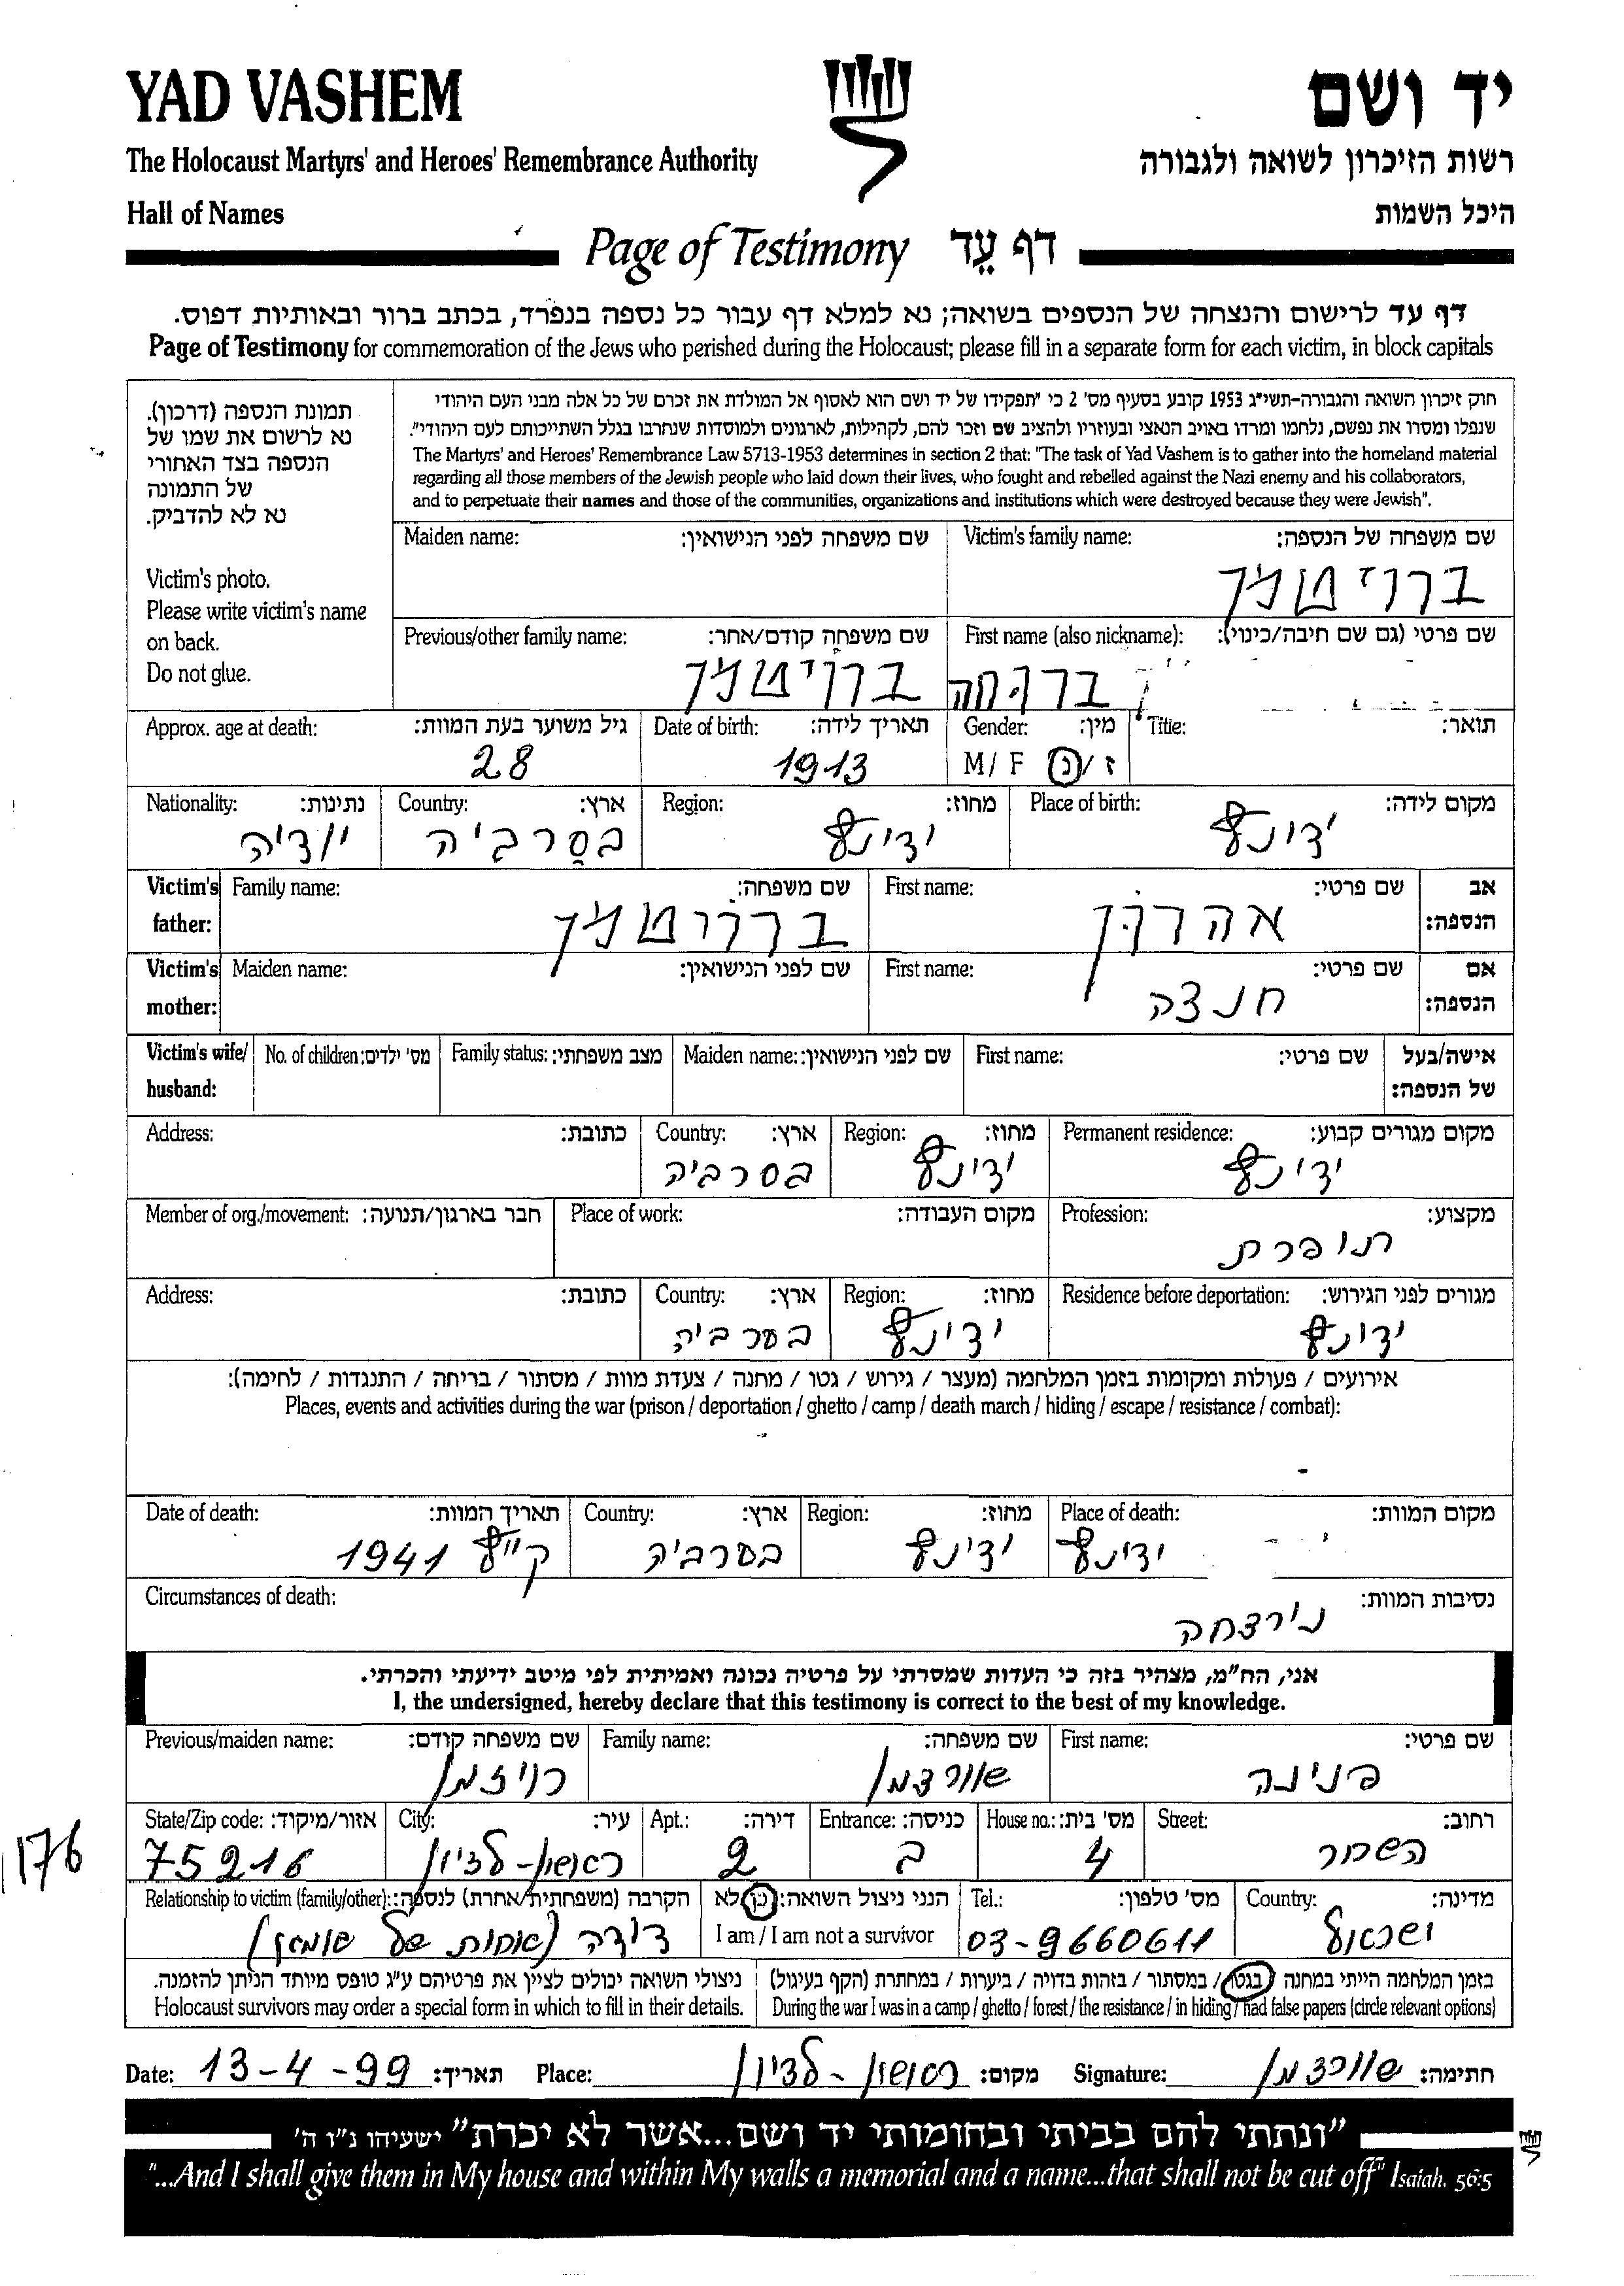 YAD VASHEM
יד ושם
The Holocaust Martyrs' and Heroes' Remembrance Authority
רשות הזיכרון לשואה ולגבורה
Hall of Names
היכל השמות
Page of Testimony דף עֵד
דף עד לרישום והנצחה של הנספים בשואה; נא למלא דף עבור כל נספה בנפרד, בכתב ברור ובאותיות דפוס.
Page of Testimony for commemoration of the Jews who perished during the Holocaust; please fill in a separate form for each victim, in block capitals
תמונת הנספה (דרכון).
נא לרשום את שמו של
הנספה בצד האחורי
של התמונה
נא לא להדביק.
Victim's photo.
Please write victim's name
on back.
Do not glue.
חוק זיכרון השואה והגבורה-תשי"ג 1953 קובע בסעיף מס' 2 כי "תפקידו של יד ושם הוא לאסוף אל המולדת את זכרם של כל אלה מבני העם היהודי
שנפלו ומסרו את נפשם, נלחמו ומרדו באויב הנאצי ובעוזריו ולהציב שם וזכר להם, לקהילות, לארגונים ולמוסדות שנחרבו בגלל השתייכותם לעם היהודי".
The Martyrs' and Heroes' Remembrance Law 5713-1953 determines in section 2 that: "The task of Yad Vashem is to gather into the homeland material
regarding all those members of the Jewish people who laid down their lives, who fought and rebelled against the Nazi enemy and his collaborators,
and to perpetuate their names and those of the communities, organizations and institutions which were destroyed because they were Jewish".
Maiden name: שם משפחה לפני הנישואין:
Victim's family name: שם משפחה של הנספה:
ברויטמן
Previous/other family name: שם משפחה קודם/אחר:
ברויטמן
First name (also nickname): שם פרטי (גם שם חיבה/כינוי):
Approx. age at death: גיל משוער בעת המוות:
28
Date of birth: תאריך לידה:
1913
Gender: מין:
M/ F ז/נ
Title: תואר:
Nationality: נתינות:
Country: ארץ:
בסרביה
Region: מחוז:
ידינץ
Place of birth: מקום לידה:
ידינץ
Victim's father: Family name: שם משפחה:
ברויטמן
First name: שם פרטי:
אהרון
אב הנספה:
Victim's mother: Maiden name: שם לפני הנישואין:
First name: שם פרטי:
חנצה
אם הנספה:
Victim's wife/ husband: No. of children: מס' ילדים:
Family status: מצב משפחתי:
Maiden name: שם לפני הנישואין:
First name: שם פרטי:
אישה/בעל של הנספה:
Address: כתובת:
Country: ארץ:
בסרביה
Region: מחוז:
ידינץ
Permanent residence: מקום מגורים קבוע:
ידינץ
Member of org./movement: חבר בארגון/תנועה:
Place of work: מקום העבודה:
Profession: מקצוע:
תופרת
Address: כתובת:
Country: ארץ:
בסרביה
Region: מחוז:
ידינץ
Residence before deportation: מגורים לפני הגירוש:
ידינץ
אירועים / פעולות ומקומות בזמן המלחמה (מעצר / גירוש / גטו / מחנה / צעדת מוות / מסתור / בריחה / התנגדות / לחימה):
Places, events and activities during the war (prison / deportation / ghetto / camp / death march / hiding / escape / resistance / combat):
Date of death: תאריך המוות:
קייץ 1941
Country: ארץ:
בסרביה
Region: מחוז:
ידינץ
Place of death: מקום המוות:
ידינץ
Circumstances of death: נסיבות המוות:
נירצחה
אני, הח"מ, מצהיר בזה כי העדות שמסרתי על פרטיה נכונה ואמיתית לפי מיטב ידיעתי והכרתי.
I, the undersigned, hereby declare that this testimony is correct to the best of my knowledge.
Previous/maiden name: שם משפחה קודם:
רויזמן
Family name: שם משפחה:
שוורצמן
First name: שם פרטי:
פנינה
State/Zip code: אזור/מיקוד:
75216
City: עיר:
ראשון-לציון
Apt.: דירה:
2
Entrance: כניסה:
ב
House no.: מס' בית:
4
Street: רחוב:
השחר
176
Relationship to victim (family/other): הקרבה (משפחתית/אחרת) לנספה:
דודה (אחות של
הנני ניצול השואה: כן/לא
I am / I am not a survivor
Tel.: מס' טלפון:
03-9660611
Country: מדינה:
ישראל
ניצולי השואה יכולים לציין את פרטיהם ע"ג טופס מיוחד הניתן להזמנה.
Holocaust survivors may order a special form in which to fill in their details.
בזמן המלחמה הייתי במחנה / בגטו / במסתור / בזהות בדויה / ביערות / במחתרת (הקף בעיגול)
During the war I was in a camp / ghetto / forest / the resistance / in hiding / had false papers (circle relevant options)
Date: 13-4-99 תאריך: Place: ראשון-לציון מקום: Signature: שוורצמן חתימה:
"ונתתי להם בביתי ובחומותי יד ושם...אשר לא יכרת" ישעיהו נ"ו ה'
"...And I shall give them in My house and within My walls a memorial and a name...that shall not be cut off" Isaiah. 56:5